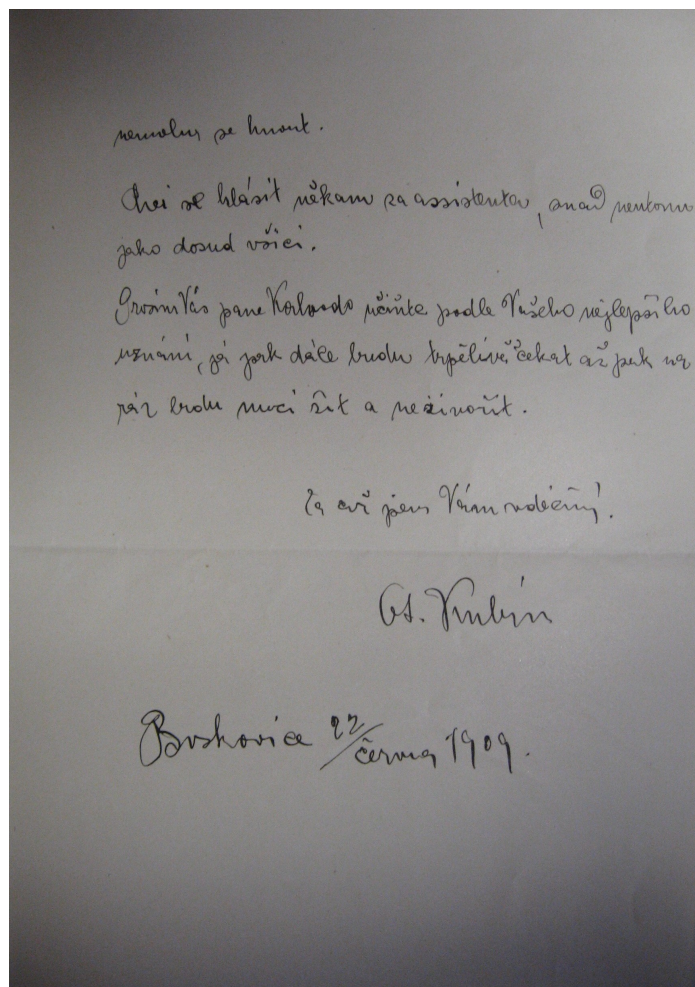 nemohu se hnout.
Chci se hlásit někam za assistenta, snad neutonu
jako dosud všici.
Prosím Vás pane učiňte podle Vašeho nejlepšího
uznání, já pak dáče budu trpělivě čekat až pak na
ráz budu moci žít a neživořit.
Za což jsem Vám vděčný.
Ot. Kubín
Boskovice 22/června 1909.